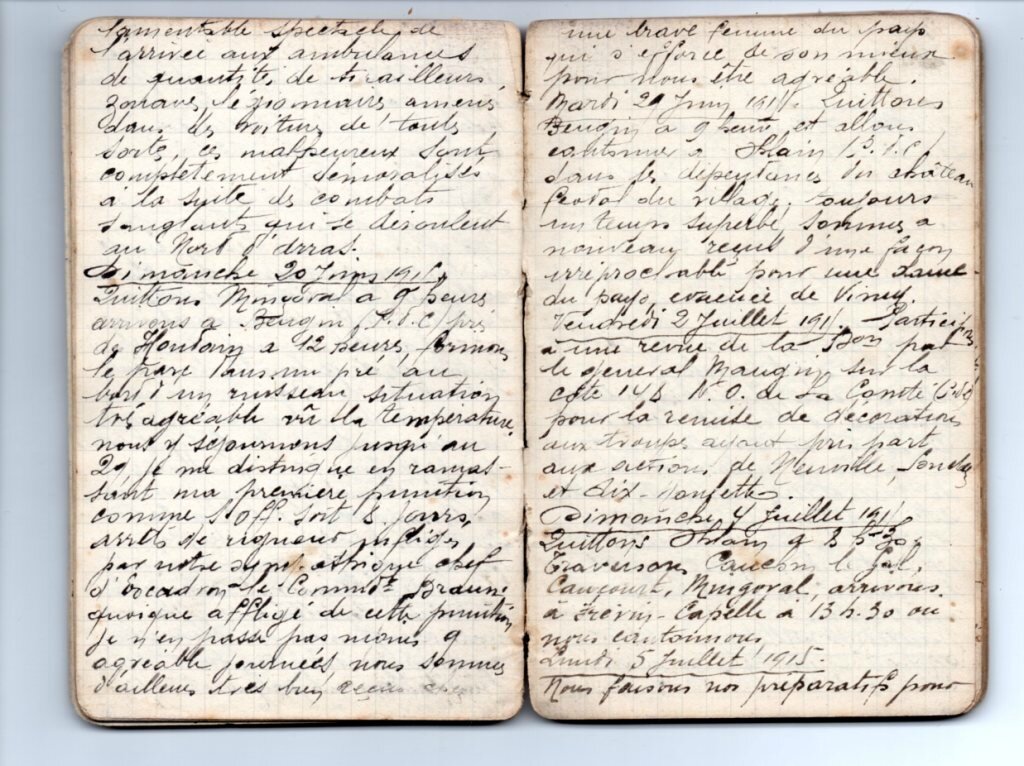 lamentable spectacle de
l'arrivée aux ambulances
de quantités de tirailleurs
zouaves, légionnaires amenés
dans des voitures de toute
sorte, ces malheureux sont
complètement démoralisés
à la suite des combats
sanglants qui se déroulent
au Nord d'Arras.
Dimanche 20 Juin 1915
Quittons Mingoval à 9 heures
arrivons à Beugin (P.d.C) près
de Houdain à 12 heures, formons
le parc dans un pré au
bord d'un ruisseau situation
très agréable vu la température
nous y séjournons jusqu'au
29, je me distingue en ramas-
sant ma première punition
comme S/Off. soit 8 jours
arrêts de rigueur infligés
par notre sympathique chef
d'escadron le Command't Braun
quoique affligé de cette punition
je n'en passe pas moins 9
agréable journées nous sommes
d'ailleurs très bien reçus chez
une brave femme du pays
qui s'efforce de son mieux
pour nous être agréable.
Mardi 29 Juin 1915. Quittons
Beugin à 9 heures et allons
cantonner à (P.d.C)
dans les dépendances du château
féodal du village, toujours
un temps superbe, sommes à
nouveau reçus d'une façon
irréprochable pour une dame
du pays, évacuée de Vimy.
Vendredi 2 Juillet 1915. Participons
à une revue de la Don par
le général Maugin sur la
côte 148 N.O. de La Comté (P.d.C)
pour la remise de décorations
aux troupes ayant pris part
aux actions de Neuville, Souchez
et Aix-Noulette.
Dimanche 4 Juillet 1915
Quittons à 8 h 30
traversons Caucourt,
Mingoval, arrivons
à Frévin-Capelle à 13 h. 30 où
nous cantonnons.
Lundi 5 Juillet 1915.
Nous faisons nos préparatifs pour